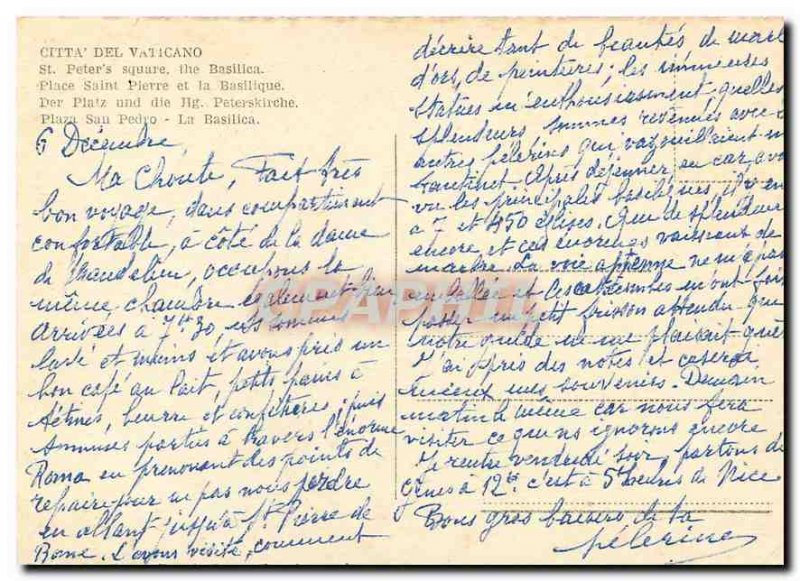 CITTA' DEL VATICANO
St. Peter's square, the Basilica.
Place Saint Pierre et la Basilique.
Der Platz und die Hg. Peterskirche.
Plaza San Pedro - La Basilica.
6 Décembre,
Ma Choute, Fait très
bon voyage, dans compartiment
confortable, à côté de la dame
de Mandelieu, occupons la
même chambre également bien
Arrivées à 7h30, nous sommes
lavé et mains et avons pris un
bon café au lait, petits pains à
beurre et confitures, puis
sommes parties à travers l'énorme
Rome en prenant des points de
repaire pour ne pas nous perdre
en allant jusqu'à St Pierre de
Rome. L'avons visité, comment
décrire tant de beautés de
d'ors, de peintures, les immenses
statues m'enthousiasment quelles
splendeurs, sommes revenues avec
autres pèlerines qui
Après déjeuner, en car
vu les principales basiliques, il y en
a 7 et 450 églises. Que de splendeurs
encore et ces énormes de
marbre. La voie appienne ne m'a pas
emballée et les catacombes m'ont fait
passer un petit frisson attendu que
notre guide ne me plaisait
J'ai pris des notes et
mes souvenirs. Demain
matin le même car nous fera
visiter ce que ns ignorons encore
Je rentre vendredi soir, partons de
Gênes à 12h c'est à 5 heures de Nice
Bons gros baisers de ta
pèlerine